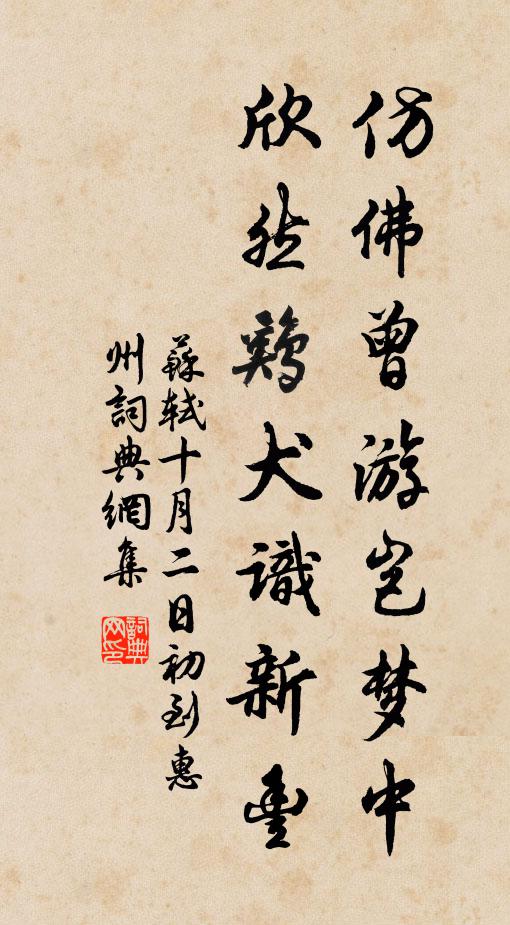 仿佛曾游岂梦中
欣然鷄犬識新豐
蘇軾十月二日初到惠
州詞典網集
詞典
网印